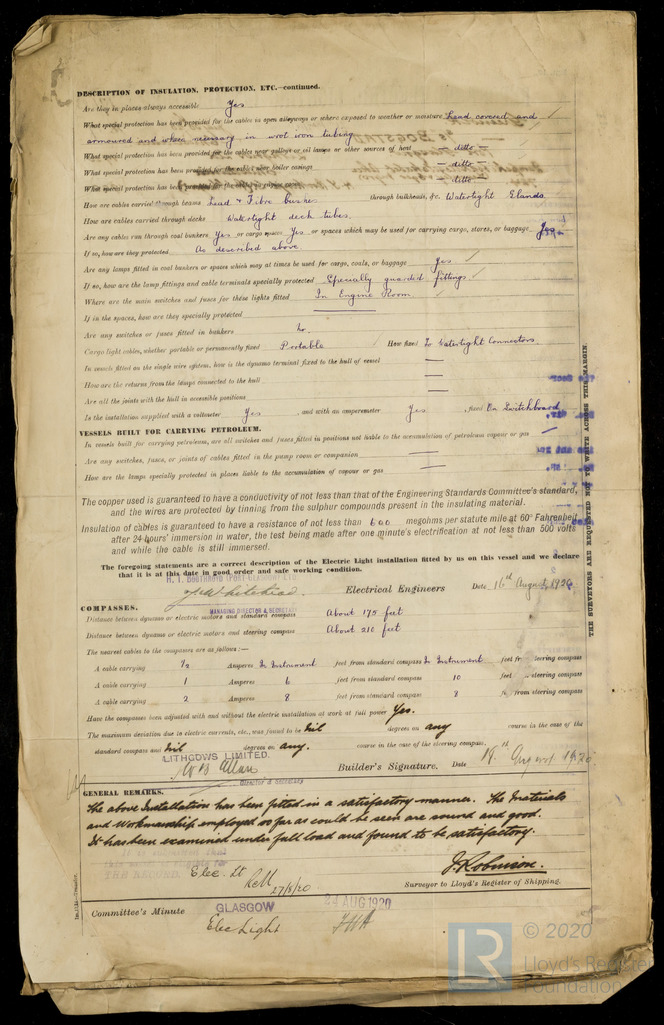 DESCRIPTION OF INSULATION, PROTECTION, ETC.—continued.
Are they in places always accessible Yes
What special protection has been provided for the cables in open alleyways or where exposed to weather or moisture Lead covered and
armoured and where necessary in wrot iron tubing
What special protection has been provided for the cables near galleys or oil lamps or other sources of heat — ditto —
What special protection has been provided for the cables near boiler casings — ditto —
What special protection has been — ditto —
How are cables carried through beams Lead & Fibre bushes through bulkheads, &c. Watertight Glands.
How are cables carried through decks Watertight deck tubes.
Are any cables run through coal bunkers Yes or cargo spaces Yes or spaces which may be used for carrying cargo, stores, or baggage Yes
If so, how are they protected As described above.
Are any lamps fitted in coal bunkers or spaces which may at times be used for cargo, coals, or baggage Yes
If so, how are the lamp fittings and cable terminals specially protected Specially guarded fittings
Where are the main switches and fuses for these lights fitted In Engine Room
If in the spaces, how are they specially protected
Are any switches or fuses fitted in bunkers No.
Cargo light cables, whether portable or permanently fixed Portable How fixed To Watertight Connectors.
In vessels fitted on the single wire system, how is the dynamo terminal fixed to the hull of vessel —
How are the returns from the lamps connected to the hull —
Are all the joints with the hull in accessible positions —
Is the installation supplied with a voltmeter Yes , and with an amperemeter Yes , fixed On Switchboard
VESSELS BUILT FOR CARRYING PETROLEUM.
In vessels built for carrying petroleum, are all switches and fuses fitted in positions not liable to the accumulation of petroleum vapour or gas —
Are any switches, fuses, or joints of cables fitted in the pump room or companion —
How are the lamps specially protected in places liable to the accumulation of vapour or gas —
The copper used is guaranteed to have a conductivity of not less than that of the Engineering Standards Committee's standard,
and the wires are protected by tinning from the sulphur compounds present in the insulating material.
Insulation of cables is guaranteed to have a resistance of not less than 600 megohms per statute mile at 60° Fahrenheit
after 24 hours' immersion in water, the test being made after one minute's electrification at not less than 500 volts
and while the cable is still immersed.
The foregoing statements are a correct description of the Electric Light installation fitted by us on this vessel and we declare
that it is at this date in good order and safe working condition.
Electrical Engineers Date 16th August 1920
MANAGING DIRECTOR & SECRETARY
COMPASSES.
Distance between dynamo or electric motors and standard compass About 175 feet
Distance between dynamo or electric motors and steering compass About 210 feet
The nearest cables to the compasses are as follows:—
A cable carrying 1/2 Amperes In Instrument feet from standard compass In Instrument feet from steering compass
A cable carrying 1 Amperes 6 feet from standard compass 10 feet from steering compass
A cable carrying 2 Amperes 8 feet from standard compass 8 feet from steering compass
Have the compasses been adjusted with and without the electric installation at work at full power Yes.
The maximum deviation due to electric currents, etc., was found to be Nil degrees on any course in the case of the
standard compass and Nil degrees on any. course in the case of the steering compass.
LITHGOWS LIMITED.
Builder's Signature. Date 19th August 1920
Director & Secretary
GENERAL REMARKS.
The above Installation has been fitted in a satisfactory manner. The Materials
and Workmanship employed so far as could be seen are sound and good.
It has been examined under full load and found to be satisfactory.
Elec. Lt
27/8/20
J. Robinson.
Surveyor to Lloyd's Register of Shipping.
Committee's Minute GLASGOW 24 AUG 1920
Elec Light
THE SURVEYORS ARE REQUESTED NOT TO WRITE ACROSS THIS MARGIN.
LR
© 2020
Lloyd's Register
Foundation